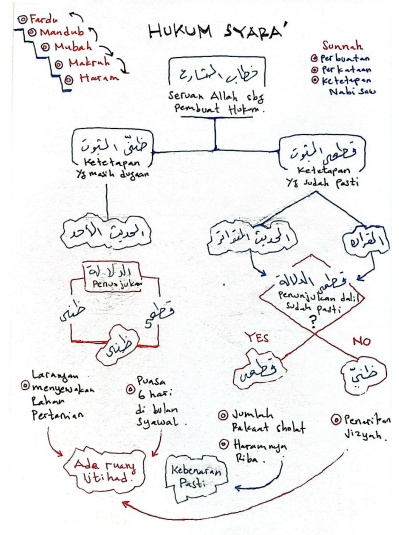 HUKUM SYARA'
Fardu
Mandub
Mubah
Makruh
Haram
Sunnah
Perbuatan
Perkataan
Ketetapan
Nabi saw
خطاب الشارع
Seruan Allah sbg
Pembuat Hukum.
ظنّي الثبوت
Ketetapan
Yg masih dugaan
قطعي الثبوت
Ketetapan
Yg sudah pasti
الحديث الأحد
الحديث المتواتر
القرآن
الدلالة
Penunjukan
ظني
قطعي
ظني
قطعي الدلالة
Penunjukan dalil
Sudah pasti
?
YES
NO
قطعي
ظنّي
Larangan
menyewakan
Lahan
Pertanian
Puasa
6 hari
di bulan
Syawal.
Jumlah
Rakaat sholat
Haramnya
Riba.
Penarikan
Jizyah.
Ada ruang
Ijtihad.
Kebenaran
Pasti